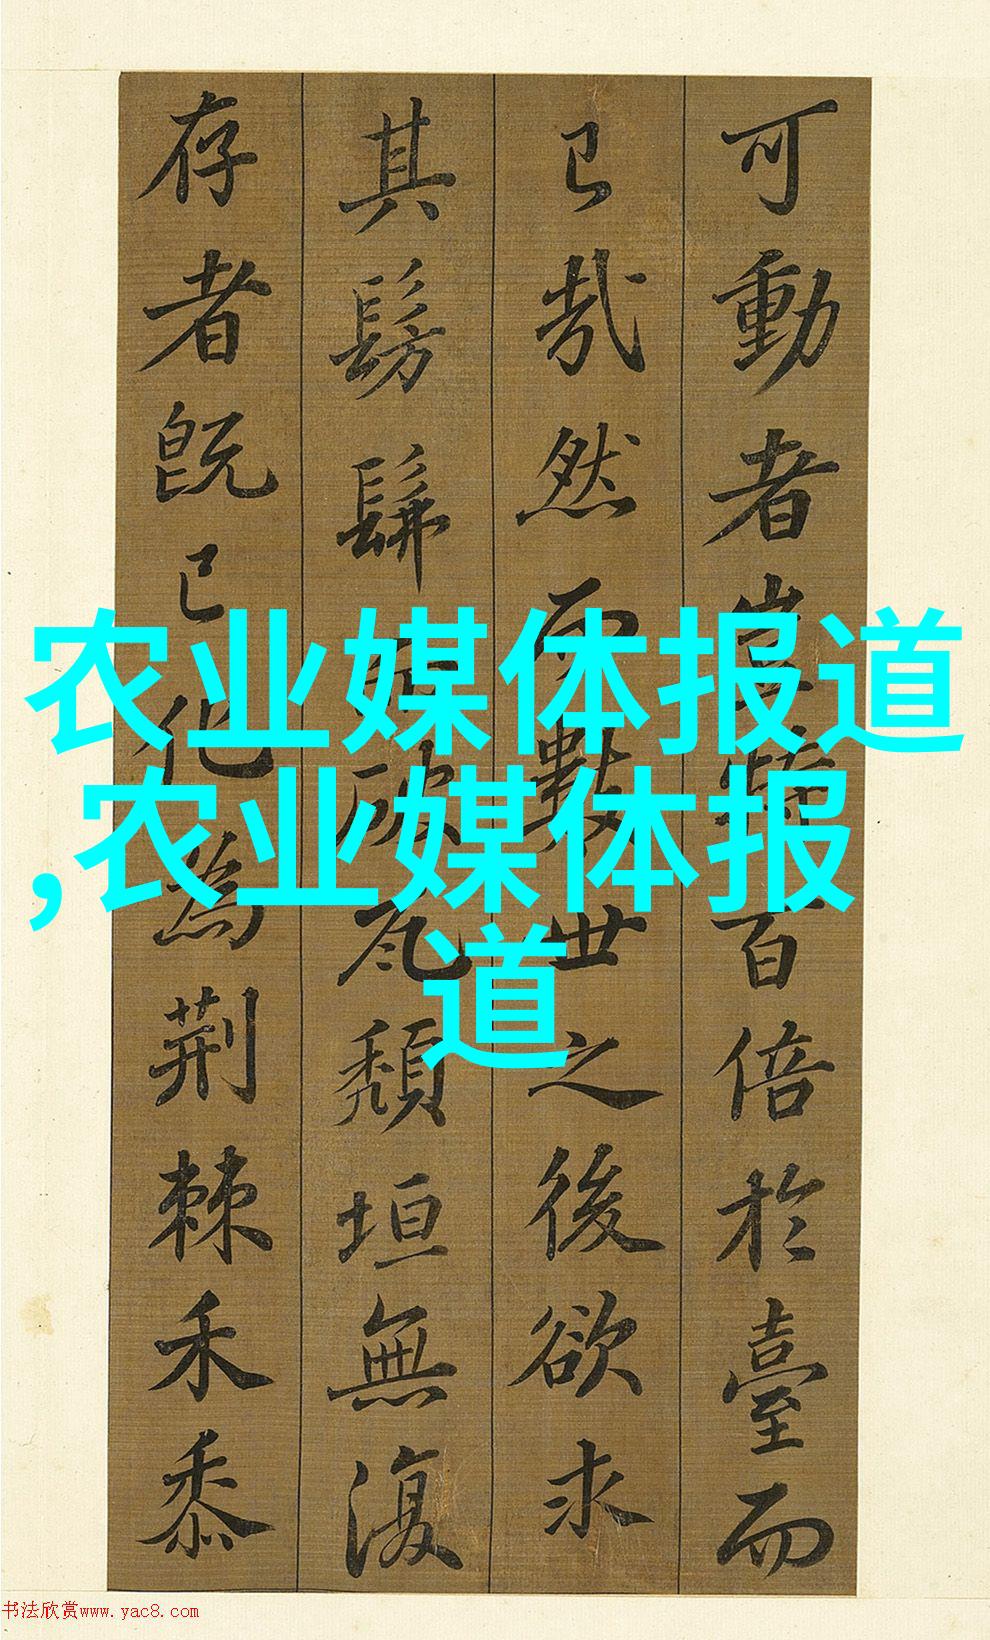 可動者豈特百倍於臺而
已哉然而數世之後欲求
其髣髴而破瓦頹垣無復
存者既已化為荊棘禾黍
农业媒体报道
,农业媒体报
道
书法欣赏www.yac8.com